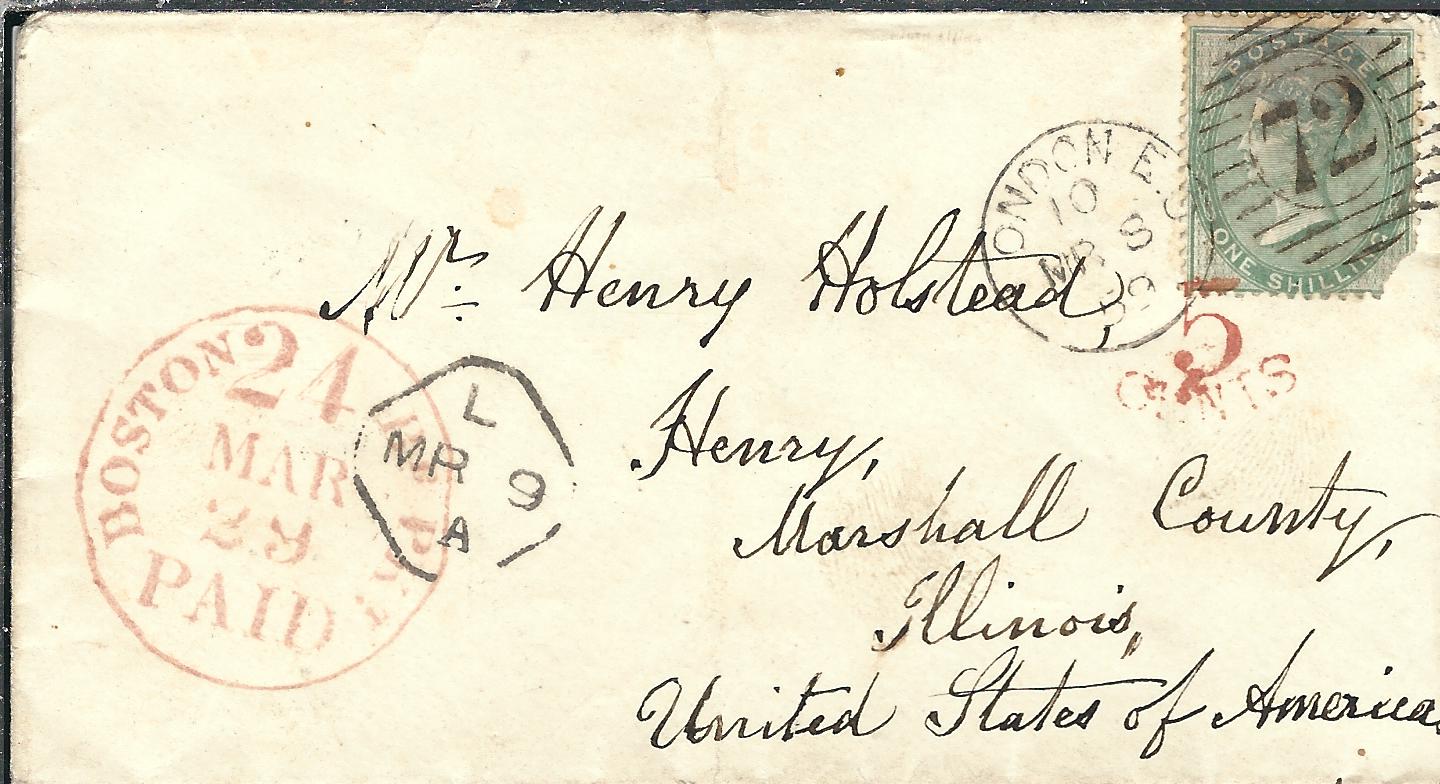 POSTAGE
72
ONE SHILLING
LONDON E.C
10
MR 8
59
5
CENTS
Mr. Henry Holstead,
BOSTON
24
MAR
29
PAID
L
MR 9
A
Henry,
Marshall County,
Illinois,
United States of America